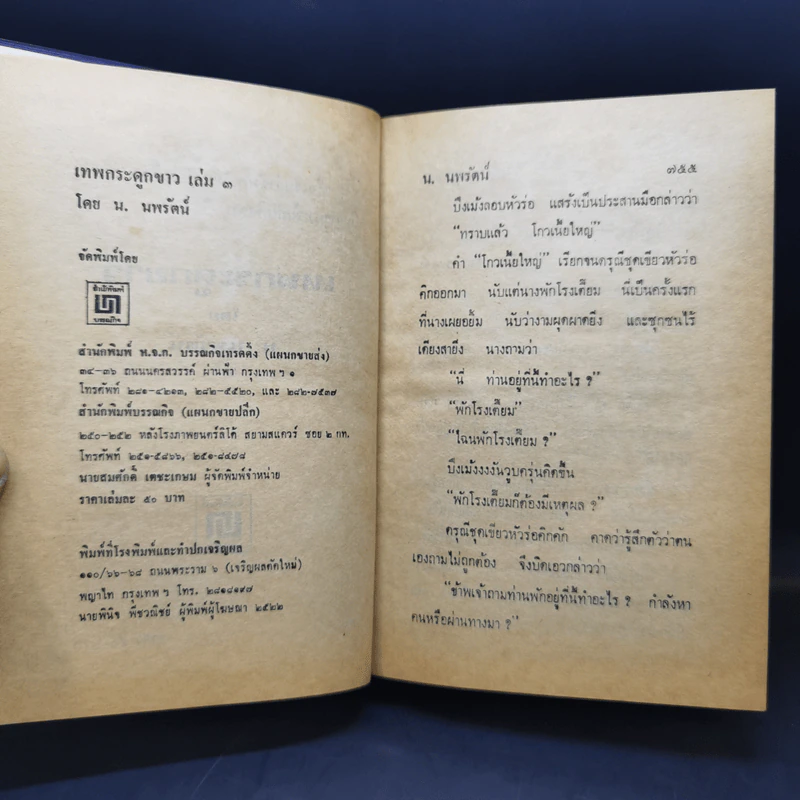 เทพกระดูกขาว เล่ม ๓
โดย น. นพรัตน์
จัดพิมพ์โดย
สำนักพิมพ์
บรรณกิจ
สำนักพิมพ์ ห.จ.ก. บรรณกิจเทรดดิ้ง (แผนกขายส่ง)
๓๔-๓๖ ถนนนครสวรรค์ ผ่านฟ้า กรุงเทพ ฯ ๑
โทรศัพท์ ๒๘๑-๔๒๑๓, ๒๘๒-๕๕๒๐, และ ๒๘๒-๗๕๓๗
สำนักพิมพ์บรรณกิจ (แผนกขายปลีก)
๒๕๐-๒๕๒ หลังโรงภาพยนตร์ลิโด้ สยามสแควร์ ซอย ๒ กท.
โทรศัพท์ ๒๕๑-๕๘๖๖, ๒๕๑-๘๔๗๘
นายสมศักดิ์ เตชะเกษม ผู้จัดพิมพ์จำหน่าย
ราคาเล่มละ ๕๐ บาท
พิมพ์ที่โรงพิมพ์และทำปกเจริญผล
๑๑๐/๖๖-๖๘ ถนนพระราม ๖ (เจริญผลตัดใหม่)
พญาไท กรุงเทพ ฯ โทร. ๒๘๑๘๑๙๗
นายพินิจ พืชวณิชย์ ผู้พิมพ์ผู้โฆษณา ๒๕๒๒
น. นพรัตน์ ๗๕๕
บึงเม้งลอบหัวร่อ แสร้งเป็นประสานมือกล่าวว่า
“ทราบแล้ว โกวเนี้ยใหญ่”
คำ “โกวเนี้ยใหญ่” เรียกจนดรุณีชุดเขียวหัวร่อ
คิกออกมา นับแต่นางพักโรงเตี๊ยม นี่เป็นครั้งแรก
ที่นางเผยอยิ้ม นับว่างามผุดผาดยิ่ง และซุกซนไร้
เดียงสายิ่ง นางถามว่า
“นี่ ท่านอยู่ที่นี้ทำอะไร ?”
“พักโรงเตี๊ยม”
“ไฉนพักโรงเตี๊ยม ?”
บึงเม้งงงงันวูบครุ่นคิดขึ้น
“พักโรงเตี๊ยมก็ต้องมีเหตุผล ?”
ดรุณีชุดเขียวหัวร่อคิกคัก คาดว่ารู้สึกตัวว่าตน
เองถามไม่ถูกต้อง จึงบิดเอวกล่าวว่า
“ข้าพเจ้าถามท่านพักอยู่ที่นี้ทำอะไร ? กำลังหา
คนหรือผ่านทางมา ?”